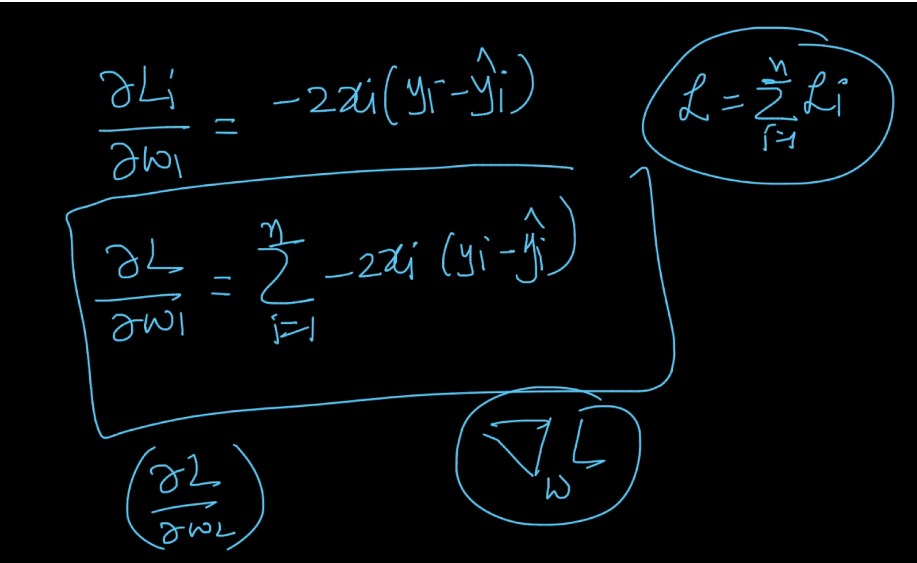 ∂Li/∂w1 = -2xi(yi-ŷi)
L = Σ_{i=1}^{n} Li
∂L/∂w1 = Σ_{i=1}^{n} -2xi (yi-ŷi)
(∂L/∂w2)
∇_w L